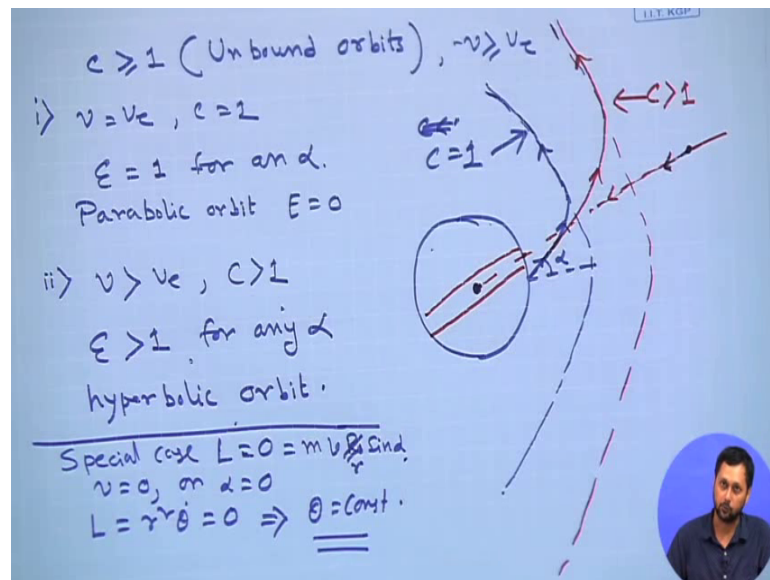 I.I.T. KGP
c ⩾ 1 (Unbound orbits), v ⩾ ve
i) v = ve, c = 1
ε = 1 for an α.
Parabolic orbit E = 0
ii) v > ve, c > 1
ε > 1 for any α
hyperbolic orbit.
Special case L = 0 = m v r sin α
v = 0, or α = 0
L = r²θ̇ = 0 ⇒ θ = const.
c = 1
← c > 1
α